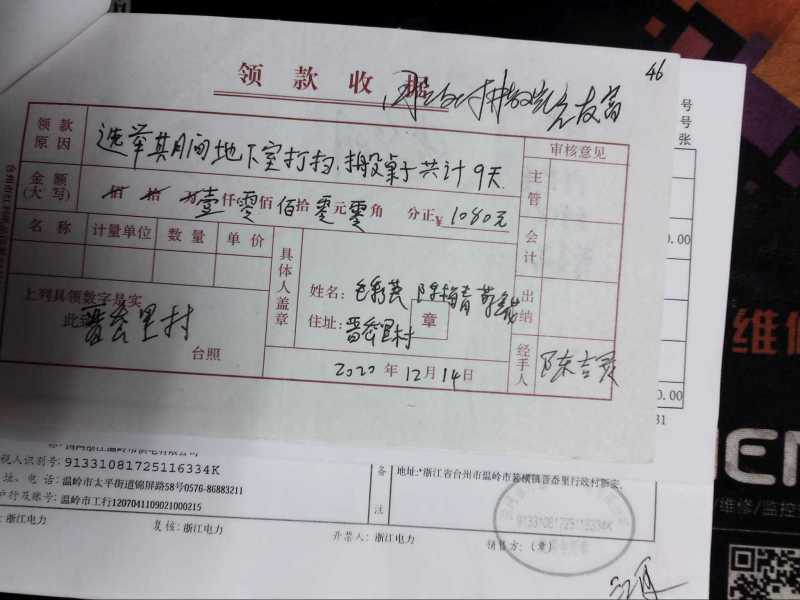 46
领款收据
领款原因
选举其月间地下室打扫、搬桌子共计9天
审核意见
金额(大写)
拾 拾 万壹仟零佰 拾零元零角 分正¥1080元
主管
名称 计量单位 数量 单价
会计
具体人盖章
上列具领数字是实
此
晋岙里村
台照
姓名:
章
住址:晋岙里村
出纳
2020年12月14日
经手人
号
号
张
0.00
0.00
31
税人识别号:91331081725116334K
址、电话:温岭市太平街道锦屏路58号0576-86883211
户行及账号:温岭市工行1207041109021000215
备注
地址:浙江省台州市温岭市箬横镇晋岙里行政村新安.
:浙江电力
复核:浙江电力
开票人:浙江电力
销售方:(章)
91331081725116334K
维修
EN
维修/监控